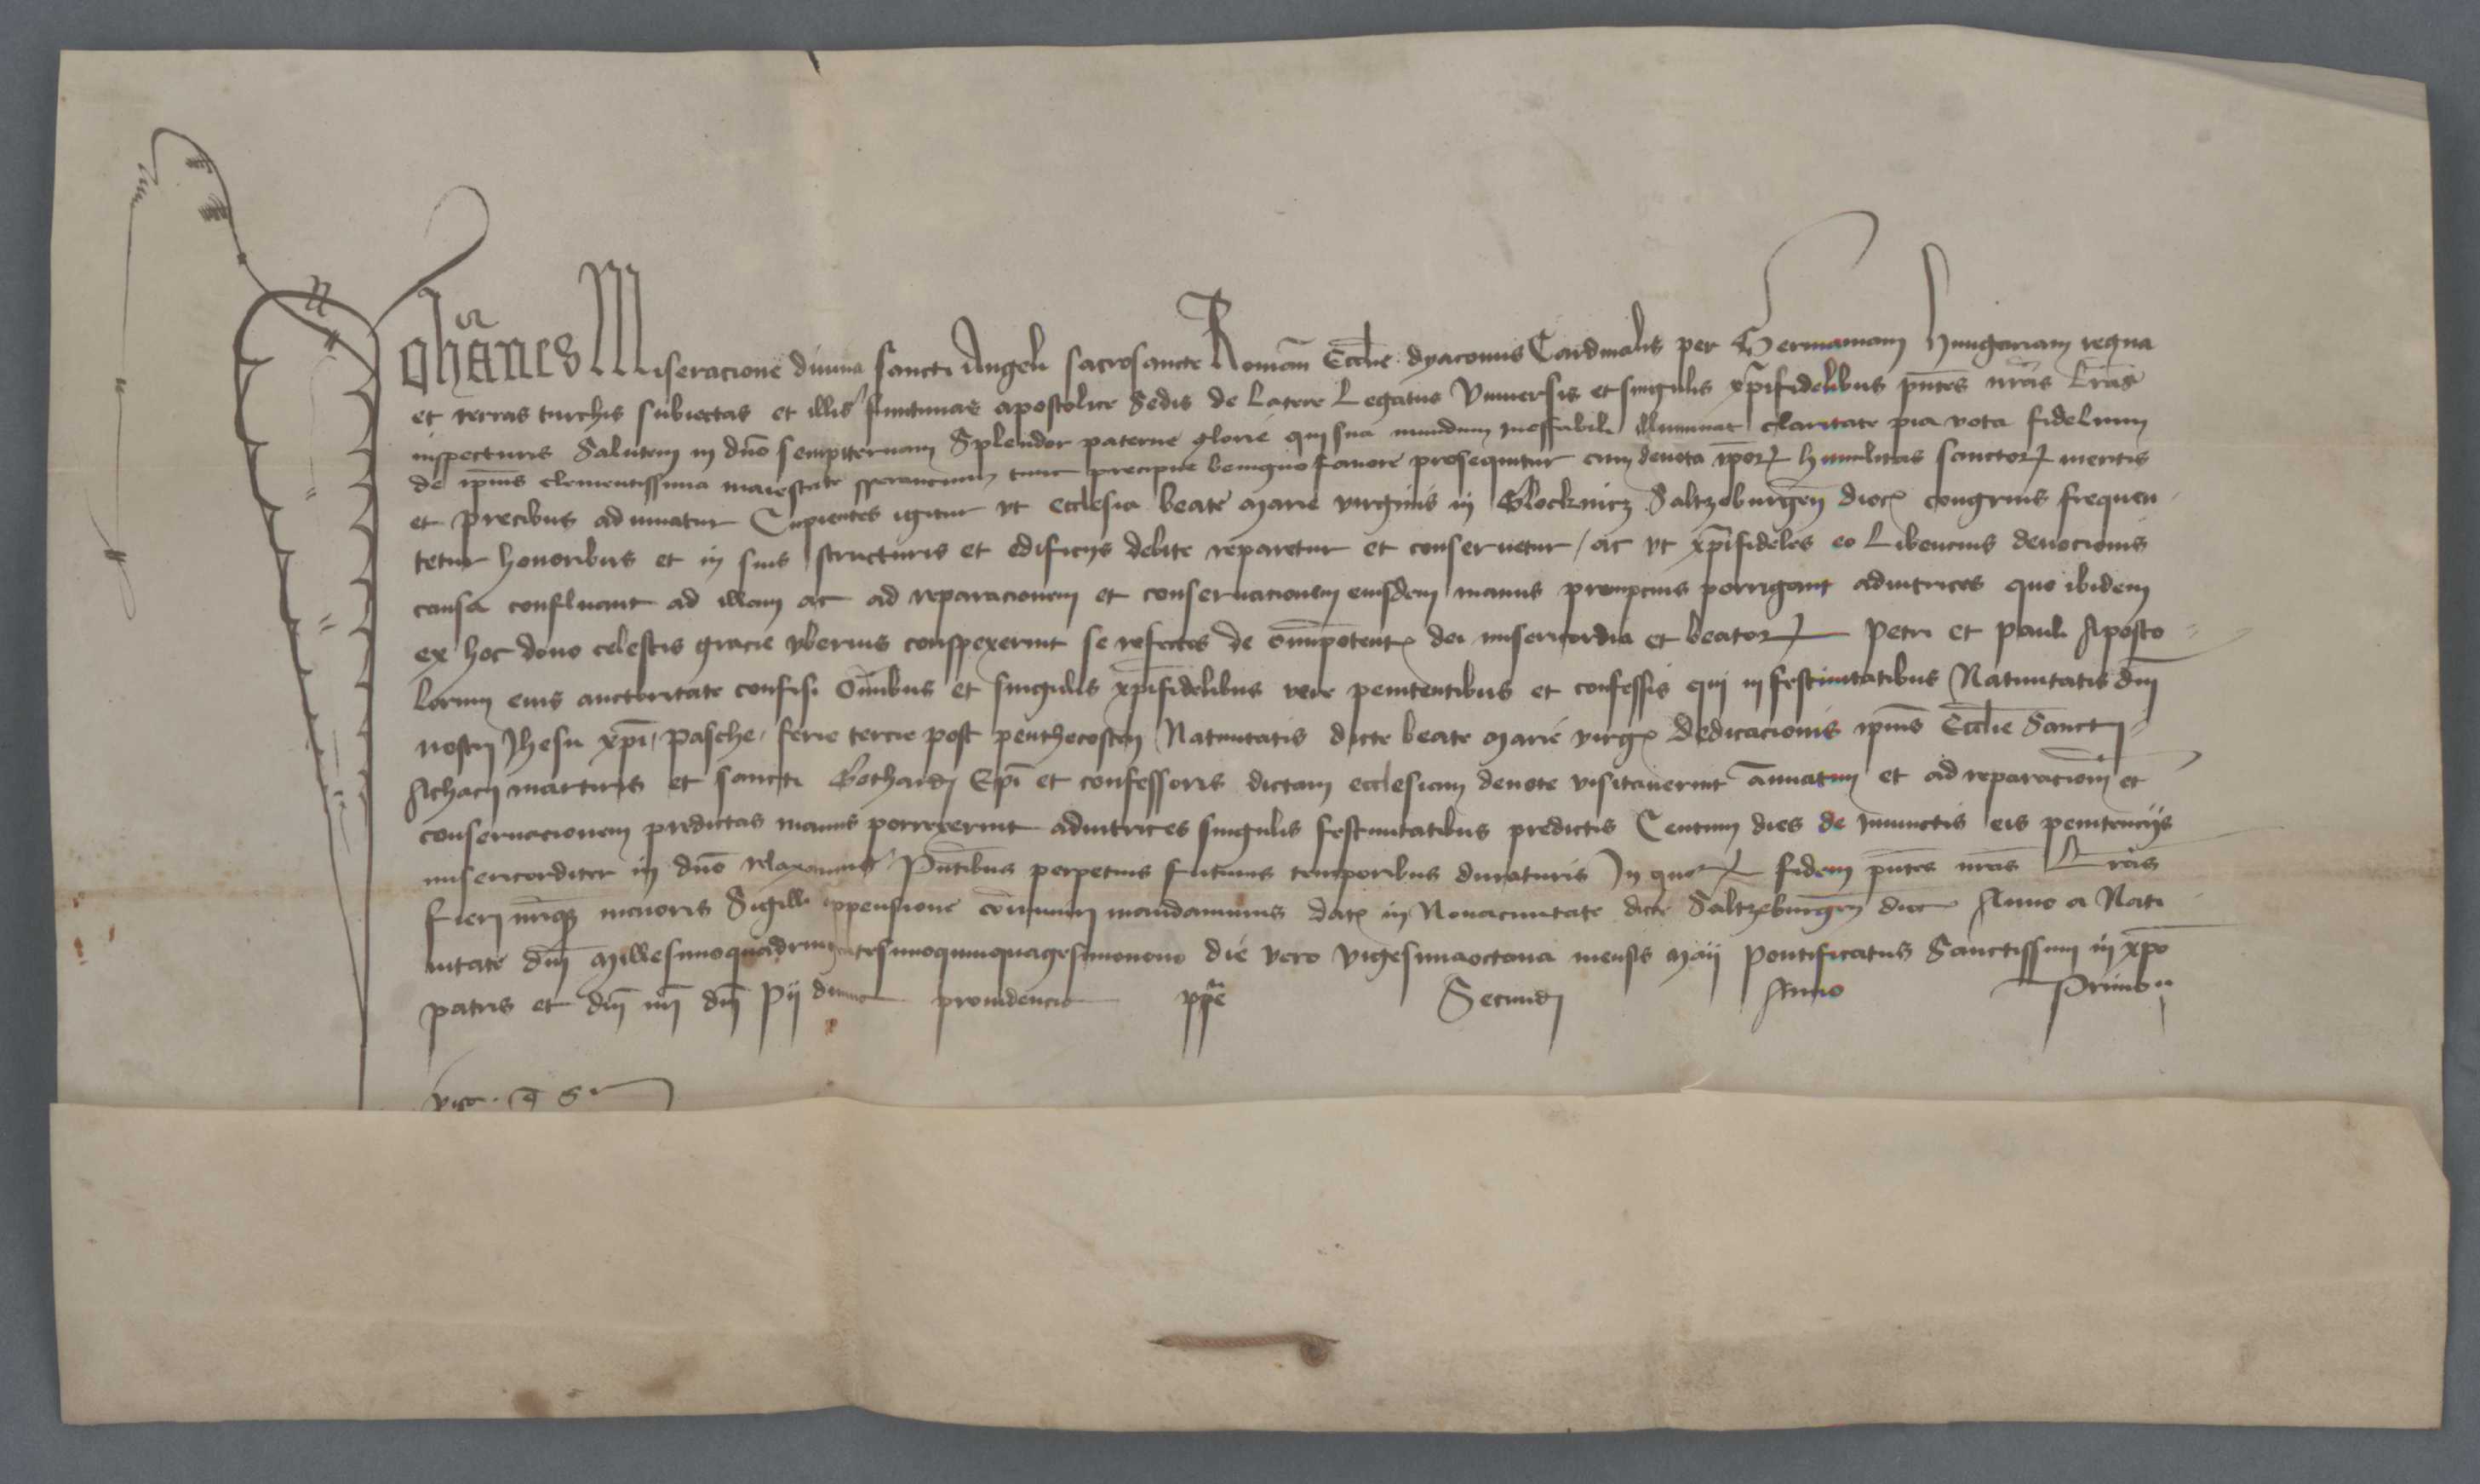 Joh̄anes Miseracione diuina sancti Angeli sacrosancte Roman̄ Eccl̄ie dyaconus Cardinalis per Germaniam Hungariam regna
et terras turchis subiectas et illis finitimas apostolice Sedis de Latere Legatus Vniuersis et singulis xp̄ifidelibus pn̄tes nr̄as Lr̄as
inspecturis Salutem in dn̄o sempiternam Splendor paterne glorie qui sua mundum ineffabili illuminat claritate pia vota fidelium
de ip̄ius clementissima maiestate sperancium tunc precipue benigno fauore prosequitur cum deuota ip̄oꝝ humilitas sanctoꝝ meritis
et precibus adiuuatur Cupientes igitur vt ecclesia beate Marie virginis in Glocknicz Saltzeburgen̄ dioc̄ congruis frequen
tetur honoribus et in suis structuris et edificijs debite reparetur et conseruetur / ac vt xp̄ifideles eo Libencius deuocionis
causa confluant ad illam ac ad reparacionem et conseruacionem eiusdem manus prompcius porrigant adiutrices quo ibidem
ex hoc dono celestis gracie vberius conspexerint se refectos de om̄ipotent̄ dei misericordia et beatoꝝ Petri et Pauli Aposto
lorum eius auctoritate confisi Om̄ibus et singulis xp̄ifidelibus vere penitentibus et confessis qui in festiuitatibus Natiuitatis dn̄i
nostri Jhesu xp̄i / Pasche / ferie tercie post penthecosten Natiuitatis dicte beate Marie virḡ Dedicacionis ip̄ius Eccl̄ie Sancti
Achacij martiris et sancti Gothardi Ep̄i et confessoris dictam ecclesiam deuote visitauerint an̄uatim et ad reparacion̄ et
conseruacionem predictas manus porrexerint adiutrices singulis festiuitatibus predictis Centum dies de Iniunctis eis penitencijs
misericorditer in dn̄o relaxamus Pn̄tibus perpetuis futuris temporibus duraturis In quoꝝ fidem pn̄tes nr̄as Lr̄as
fieri nr̄iqꝫ minoris Sigilli appensione com̄uniri mandauimus dat̄ in Nouaciuitate dicte Saltzeburgen̄ dioc̄ Anno a Nati
uitate dn̄i Millesimoquadringentesimoquinquagesimonono die vero vigesimaoctaua mensis Maij Pontificatus Sanctissimi in xp̄o
patris et dn̄i nr̄i dn̄i Pij diuina prouidencia pp̄e Secundi Anno Primo